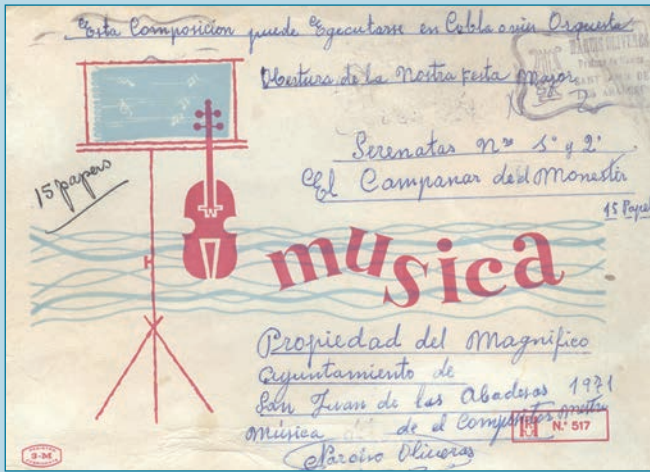 Esta Composicion puede Egecutarse en Cobla o en Orquesta
Obertura de la Nostra festa Major
NARCIS OLIVERAS
Serenatas Nos 1ª y 2ª
El Campanar del Monestir
15 papers
15 Papel
musica
Propiedad del Magnifico
Ayuntamiento de
San Juan de las Abadesas 1971
Música de el Compositor Mestre
Narciso Oliveras
N.º 517
3-M